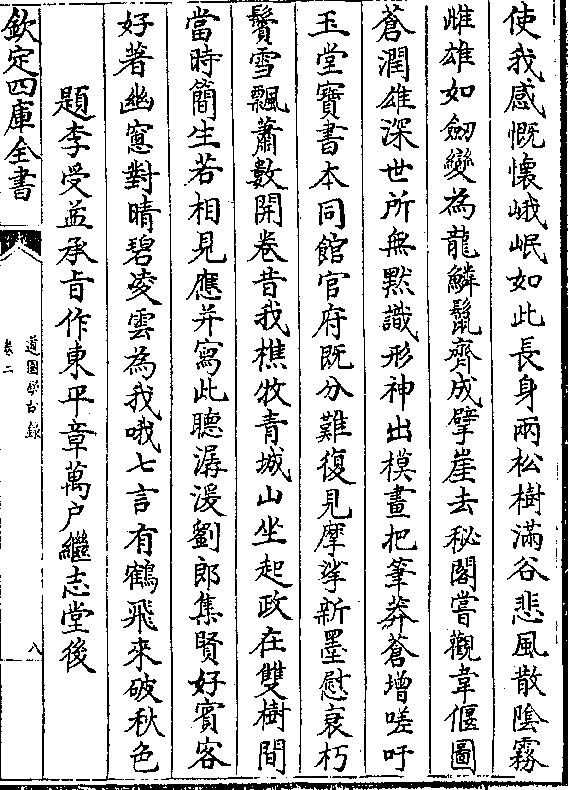 使我感慨懷峨岷如此長身兩松樹滿谷悲風散陰霧
雌雄如劒變為龍鱗鬛齊成擘崖去秘閣嘗觀韋偃圖
蒼潤雄深世所無默識形神出模畫把筆莽蒼增嗟吁
玉堂寶書本同館官府既分難復見摩挲新墨慰衰朽
鬢雪飄蕭數開卷昔我樵牧青城山坐起政在雙樹間
當時簡生若相見應并寫此聽潺湲劉郎集賢好賓客
好著幽窻對晴碧凌雲為我哦七言有鶴飛來破秋色
題李受益承旨作東平章萬户繼志堂後
欽定四庫全書
道園學古録
卷二
八